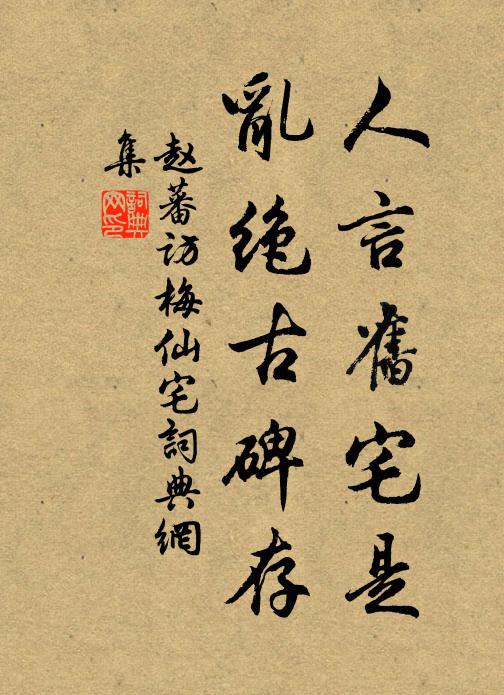 人言舊宅是
亂絶古碑存
赵蕃访梅仙宅詞典網
集
詞典
网印